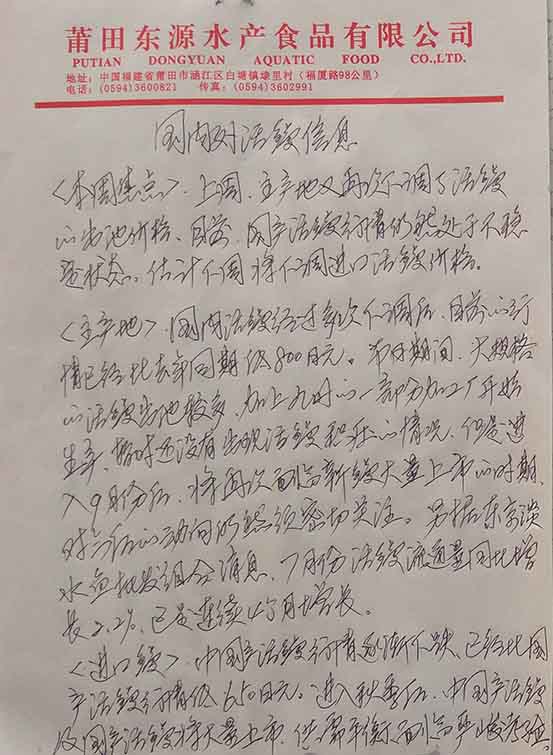 莆田东源水产食品有限公司
PUTIAN DONGYUAN AQUATIC FOOD CO.,LTD.
地址：中国福建省莆田市涵江区白塘镇埭里村（福厦路98公里）
电话：(0594)3600821 传真：(0594)3602991
国内对活鳗信息
<本周焦点>、上周、主产地又再次下调了活鳗
的出池价格、目前、国产活鳗行情仍然处于不稳
定状态。估计下周将下调进口活鳗价格。
<主产地>、国内活鳗经过多次下调后、目前的行
情已经比去年同期低800日元。节日期间、大规格
的活鳗出池较多、加上九州的一部分加工厂开始
生产、暂时还没有出现活鳗积压的情况、但是进
入9月份后、将再次面临新鳗大量上市的时期、
对今后的动向仍然须密切关注。另据东京淡
水鱼批发组合消息、7月份活鳗流通量同比增
长2.2%、已是连续4个月增长。
<进口鳗>、中国产活鳗行情逐渐下跌、已经比国
产活鳗行情低650日元。进入秋季后、中国产活鳗
及国产活鳗将大量上市、供需平衡面临严峻考验